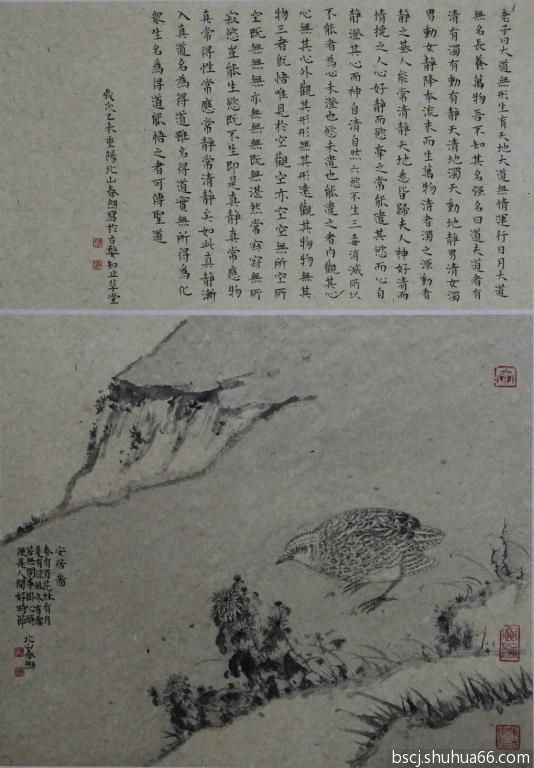 老子曰大道無形生育天地大道無情運行日月大道
無名長養萬物吾不知其名强名曰道夫道者有
清有濁有動有靜天清地濁天動地靜男清女濁
男動女靜降本流末而生萬物清者濁之源動者
靜之基人能常清靜天地悉皆歸夫人神好清而
情撓之人心好靜而慾牽之常能遣其慾而心自
靜澄其心而神自清自然六慾不生三毒消滅所以
不能者為心未澄也慾未遣也能遣之者內觀其心
心無其心外觀其形形無其形遠觀其物物無其
物三者既悟唯見於空觀空亦空空無所空所
空既無無無亦無無無既無湛然常寂寂無所
寂慾豈能生慾既不生即是真靜真常應物
真常得性常應常靜常清靜矣如此真靜漸
入真道名為得道雖名得道實無所得為化
衆生名為得道能悟之者可傳聖道
歲次乙未重陽北山春朗寫於古婺知止草堂
安居圖
春有百花秋有月
夏有涼風冬有雪
若無閑事掛心頭
便是人間好時節
北山春朗
bscj.shuhua66.com